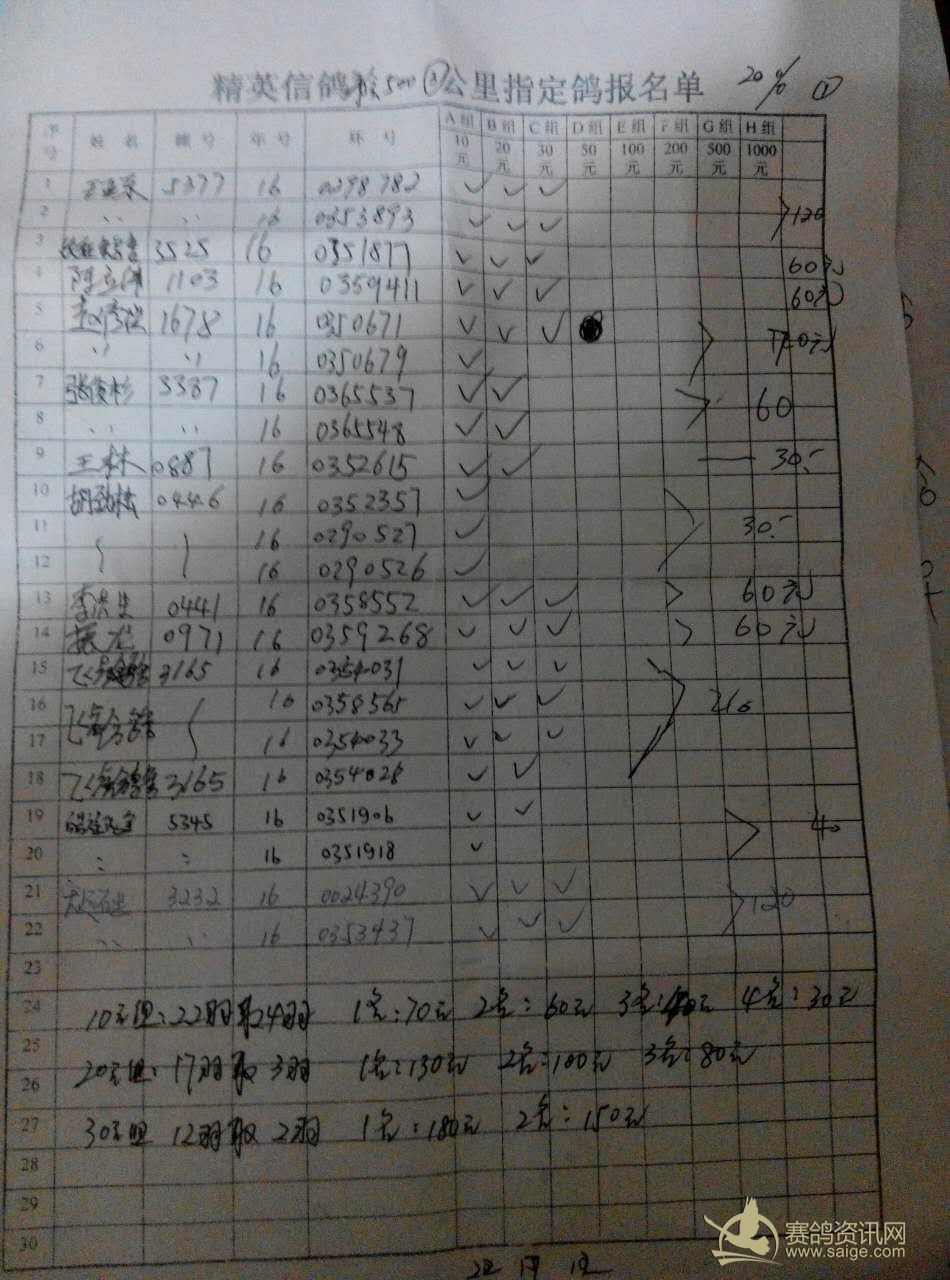 精英信鸽 500 公里指定鸽报名单 20% ①
序号 姓名 棚号 年号 环号 A组 B组 C组 D组 E组 F组 G组 H组
10元 20元 30元 50元 100元 200元 500元 1000元
1 5377 16 0298782 ✓ ✓ ✓
2 〃 〃 16 0353893 ✓ ✓ ✓ 120
3 3525 16 0351877 ✓ ✓ ✓ 60元
4 1103 16 0359411 ✓ ✓ ✓ 60元
5 1678 16 0350671 ✓ ✓ ✓
6 〃 〃 16 0350679 ✓
7 张俊杉 3387 16 0365537 ✓ ✓ 60
8 〃 〃 16 0365548 ✓ ✓
9 王林 0887 16 0352615 ✓ ✓ 30.-
10 胡劲松 0446 16 0352357 ✓
11 16 0290527 ✓ 30.-
12 16 0290526 ✓
13 李洪生 0441 16 0358552 ✓ ✓ ✓ 60元
14 振龙 0971 16 0359268 ✓ ✓ ✓ 60元
15 3165 16 0354031 ✓ ✓ ✓
16 16 0358565 ✓ ✓ ✓ 210
17 16 0354033 ✓ ✓ ✓
18 3165 16 0354028 ✓ ✓
19 5345 16 0351906 ✓ ✓ 40
20 〃 〃 16 0351918 ✓
21 3232 16 0024390 ✓ ✓ ✓ 120
22 〃 〃 16 0353437 ✓ ✓ ✓
23
24 10元组:22羽取4羽 1名:70元 2名:60元 3名:40元 4名:30元
25
26 20元组:17羽取3羽 1名:130元 2名:100元 3名:80元
27 30元组 12羽取2羽 1名:180元 2名:150元
28
29
30
22 17 12
赛鸽资讯网
www.saige.com